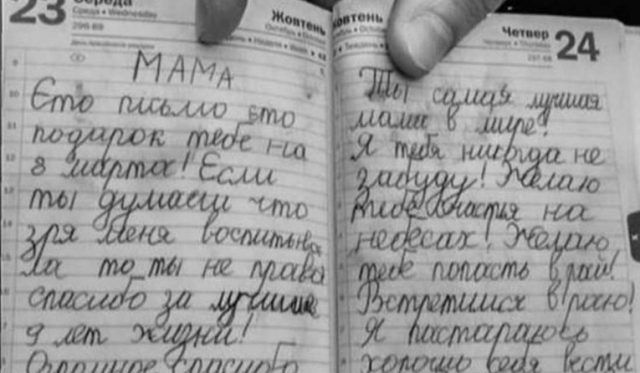 23
Середа
Среда • Wednesday
296-69
Жовтень
МАМА
Єто письмо это
подарок тебе на
8 марта! Если
ты думаеш что
зря меня воспитыва
ла то ты не права
спасибо за лучшие
9 лет жизни!
Огромное спасибо
Жовтень
Четвер
24
Четверг • Thursday
297-68
Ты самая лучшая
мама в мире!
Я тебя никогда не
забуду! Желаю
тебе счастья на
небесах! Желаю
тебе попасть в рай!
Встретимся в раю!
Я пастараюсь
хорошо себя вести